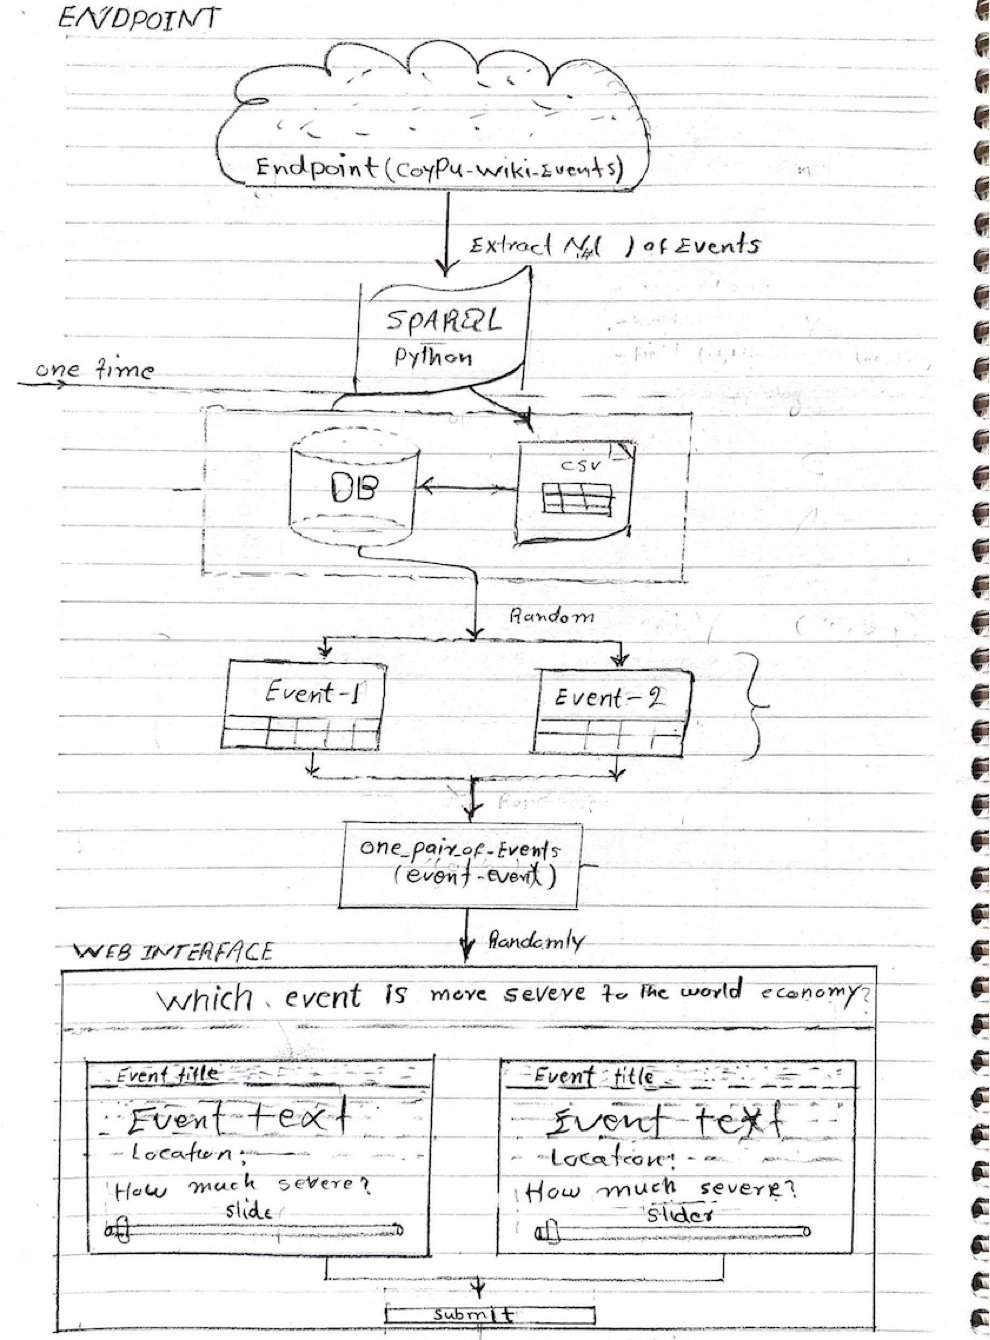 ENDPOINT
Endpoint (CoyPu-Wiki-Events)
Extract N#( ) of Events
SPARQL
Python
one time
DB
CSV
Random
Event-1
Event-2
one_pair_of-Events
(event-event)
Randomly
WEB INTERFACE
Which event is more severe to the world economy?
Event title
Event text
Location:
How much severe?
slide
Event title
Event text
Location:
How much severe?
slider
submit